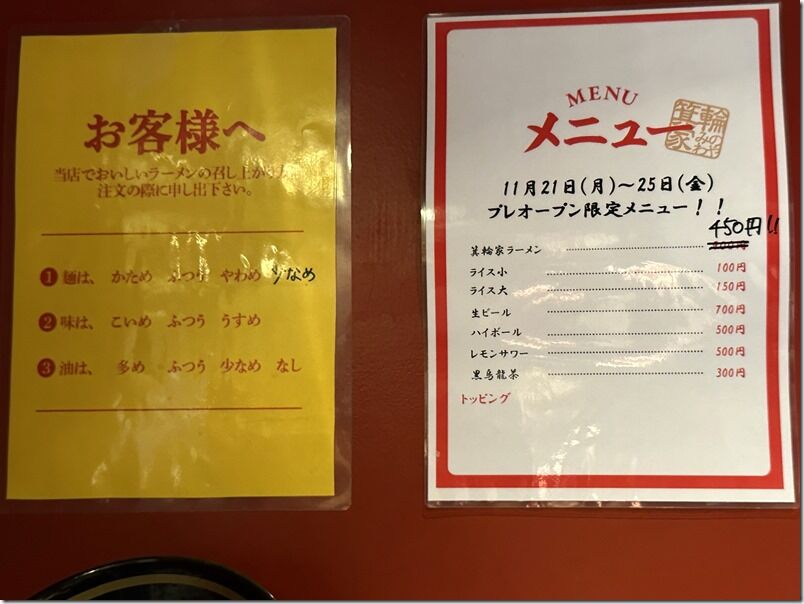 お客様へ
当店でおいしいラーメンの召し上がり
注文の際に申し出下さい。
❶麺は、 かため ふつう やわめ 少なめ
❷味は、 こいめ ふつう うすめ
❸油は、 多め ふつう 少なめ なし
MENU
メニュー
箕輪家
みのわや
11月21日(月)~25日(金)
プレオープン限定メニュー！！
450円!!
箕輪家ラーメン
ライス小 100円
ライス大 150円
生ビール 700円
ハイボール 500円
レモンサワー 500円
黒烏龍茶 300円
トッピング